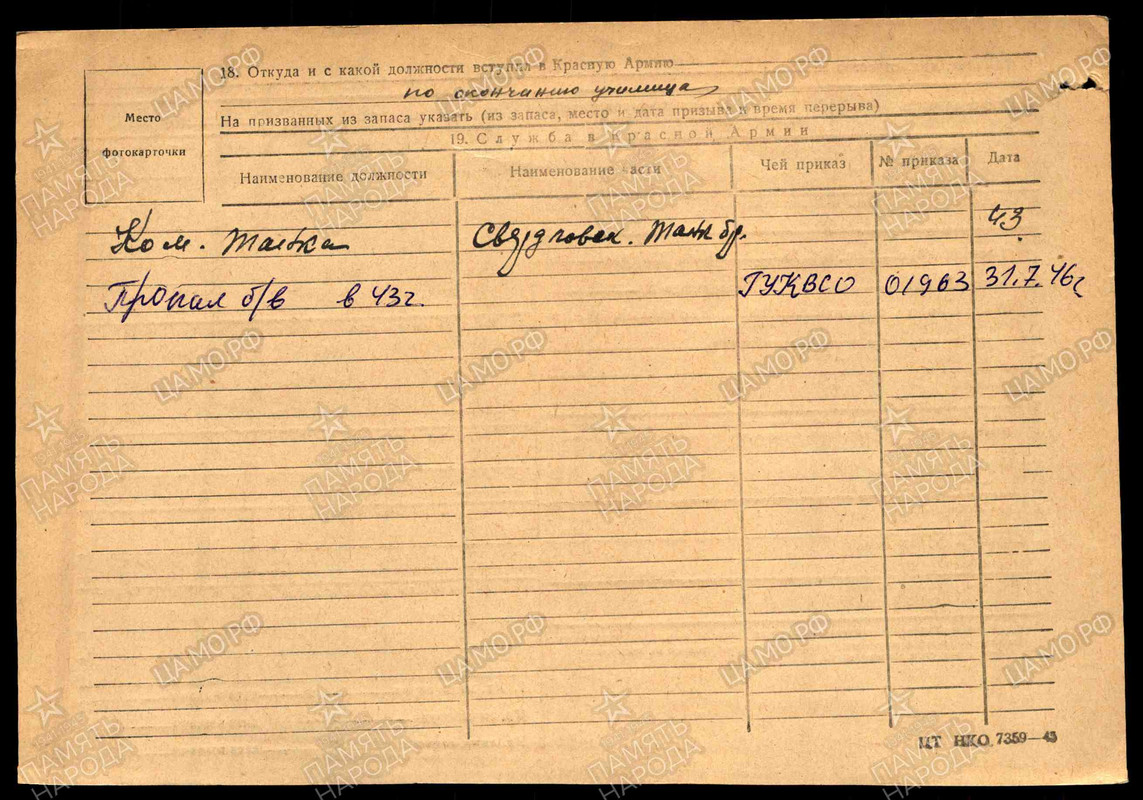 18. Откуда и с какой должности вступил в Красную Армию
по окончанию училища
На призванных из запаса указать (из запаса, место и дата призыва к время перерыва)
Место
фотокарточки
19. Служба в Красной Армии
Наименование должности Наименование части Чей приказ № приказа Дата
Ком. танка Свердловск. Танк бр. 43
Пропал б/в в 43г. ГУКВСО 01963 31.7.46г
ЦТ НКО 7359—45
ЦАМО.РФ
ПАМЯТЬ
НАРОДА